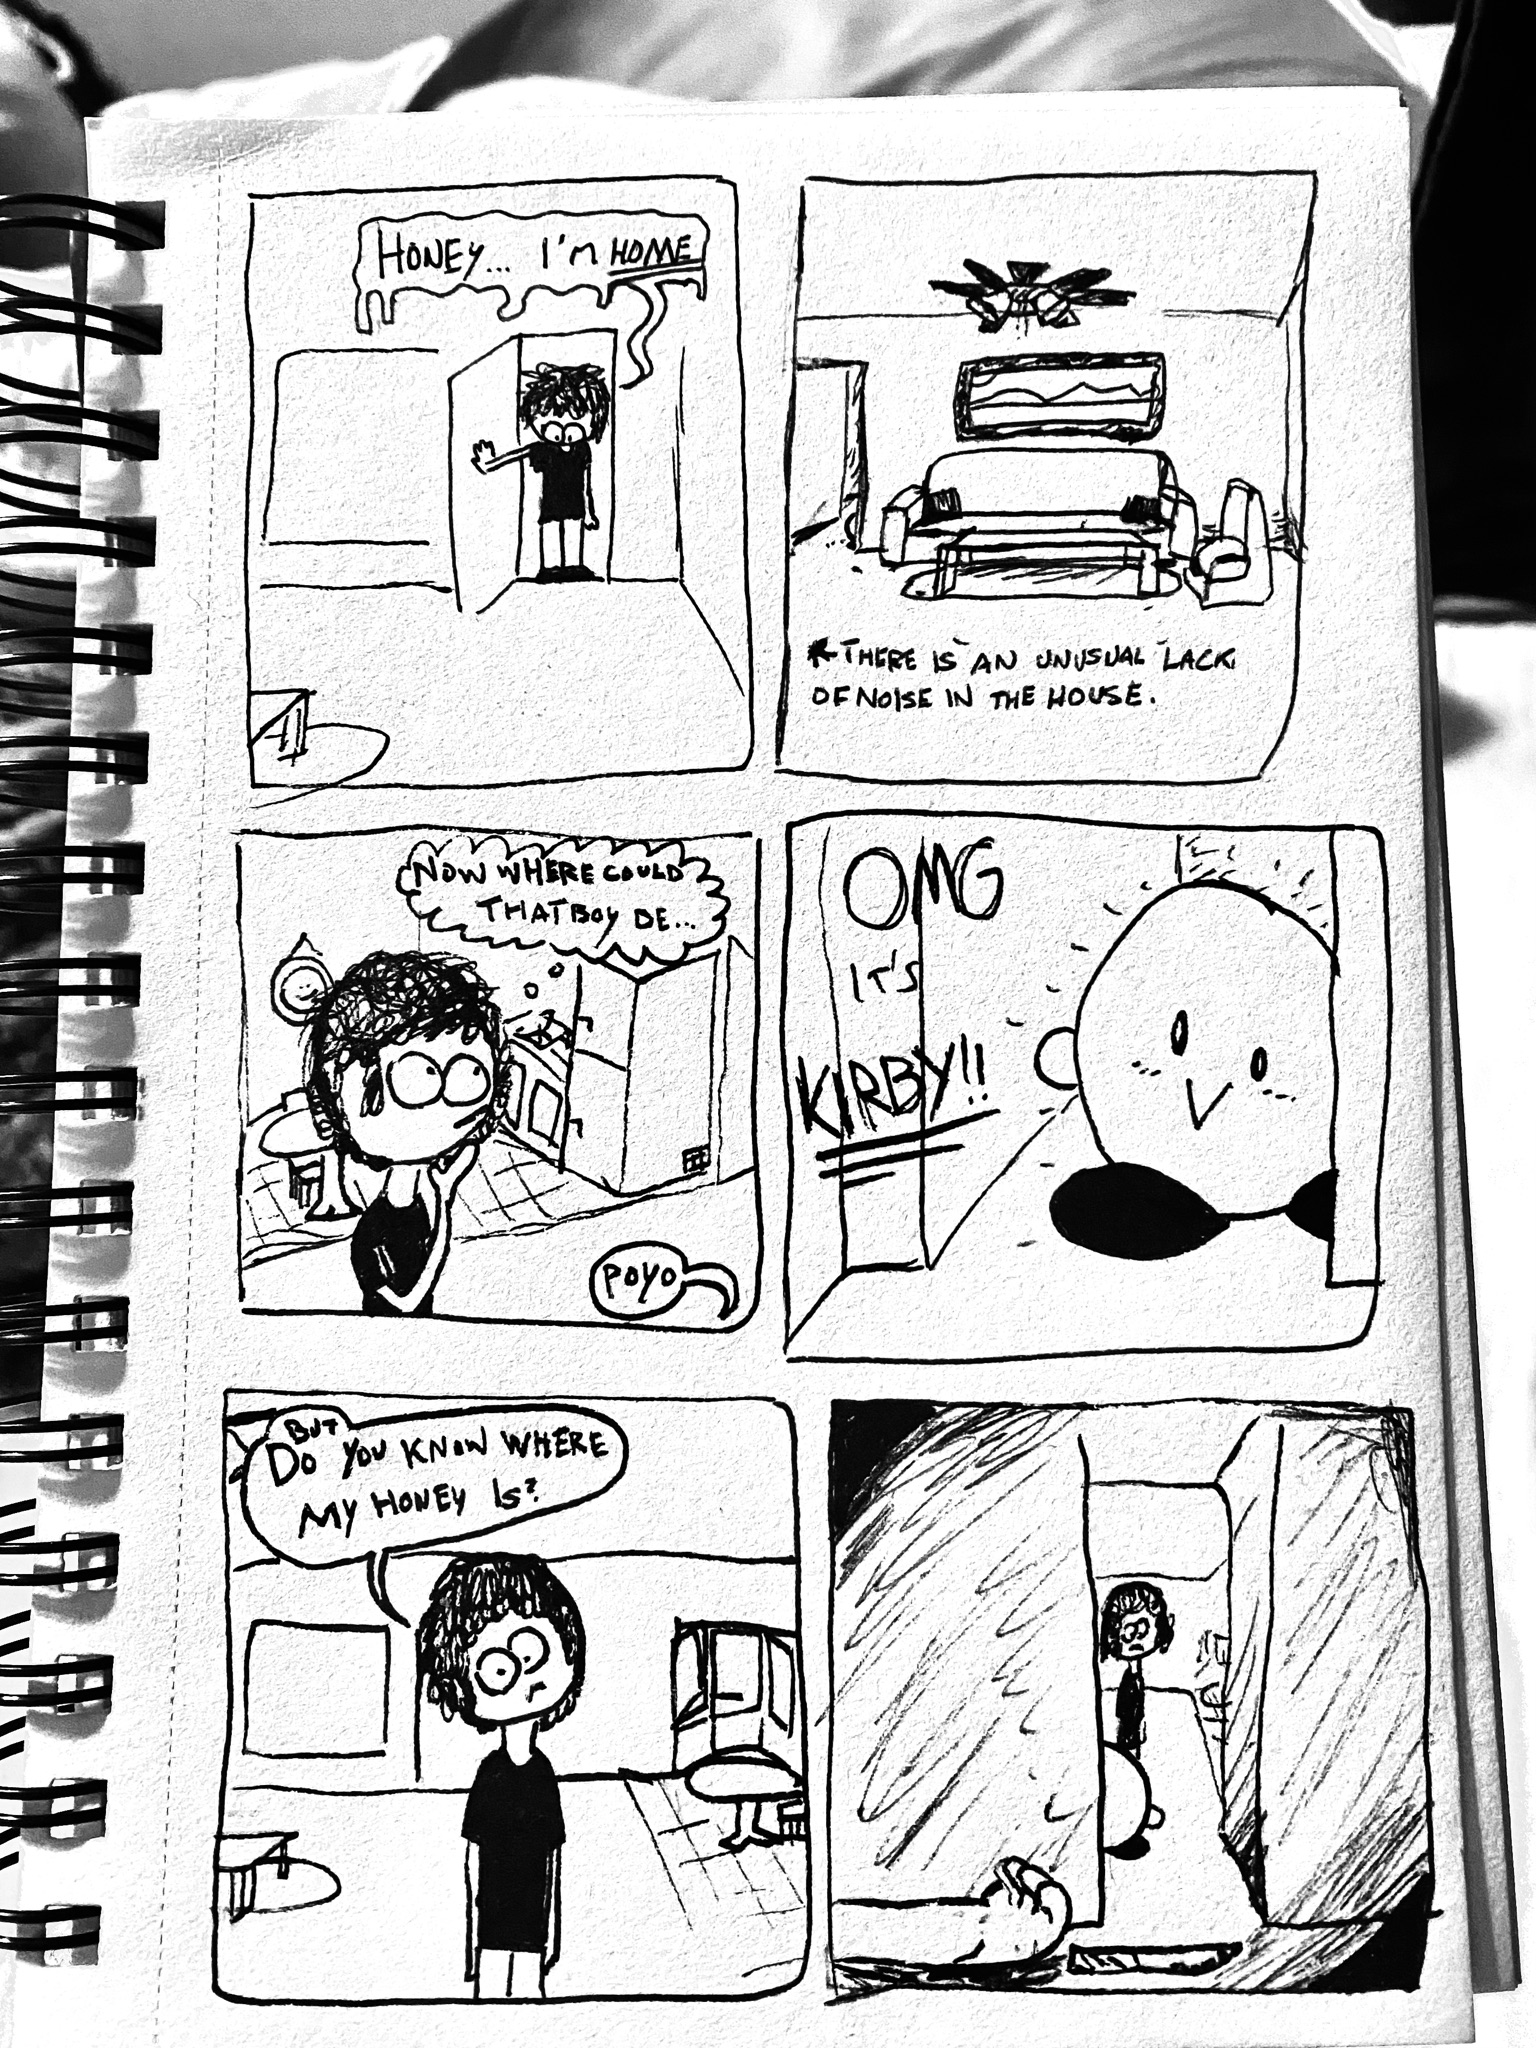 HONEY... I'M HOME
*THERE IS AN UNUSUAL LACK
OF NOISE IN THE HOUSE.
NOW WHERE COULD
THAT BOY BE...
POYO
OMG
IT'S
KIRBY!!
BUT
DO YOU KNOW WHERE
MY HONEY IS?